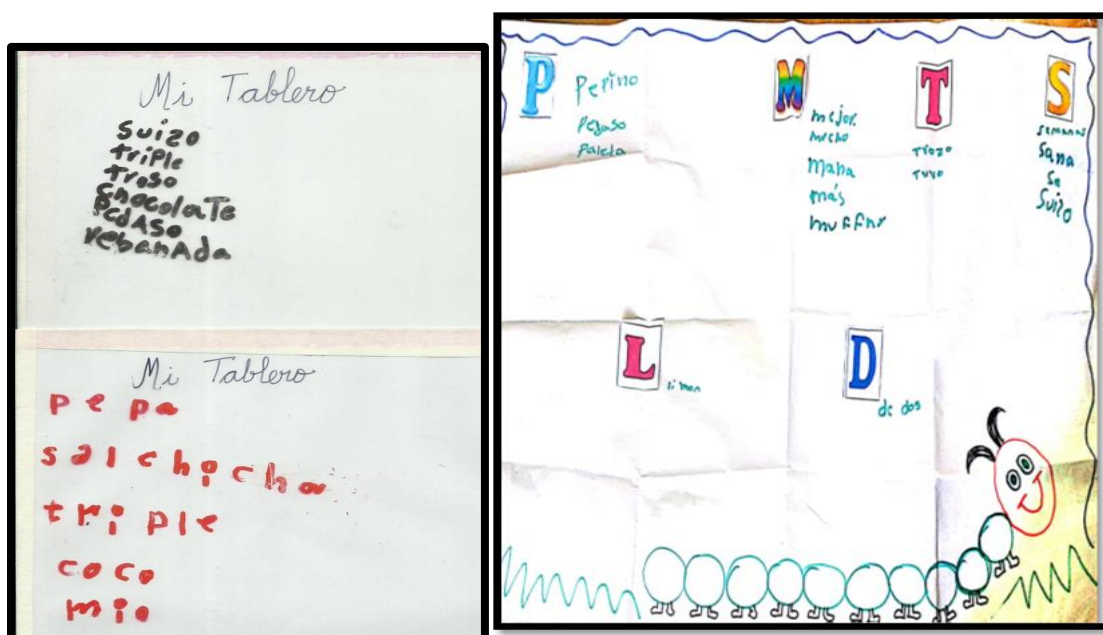 Mi Tablero
suizo
triple
troso
chocolate
pedAso
rebanAda
Mi Tablero
pepa
salchicha
triple
coco
mio
P
Pepino
Pegaso
Paleta
M
mejor
mucho
Mana
más
muffins
T
trozo
tuvo
S
semanas
Sana
Se
Suizo
L
limon
D
de dos